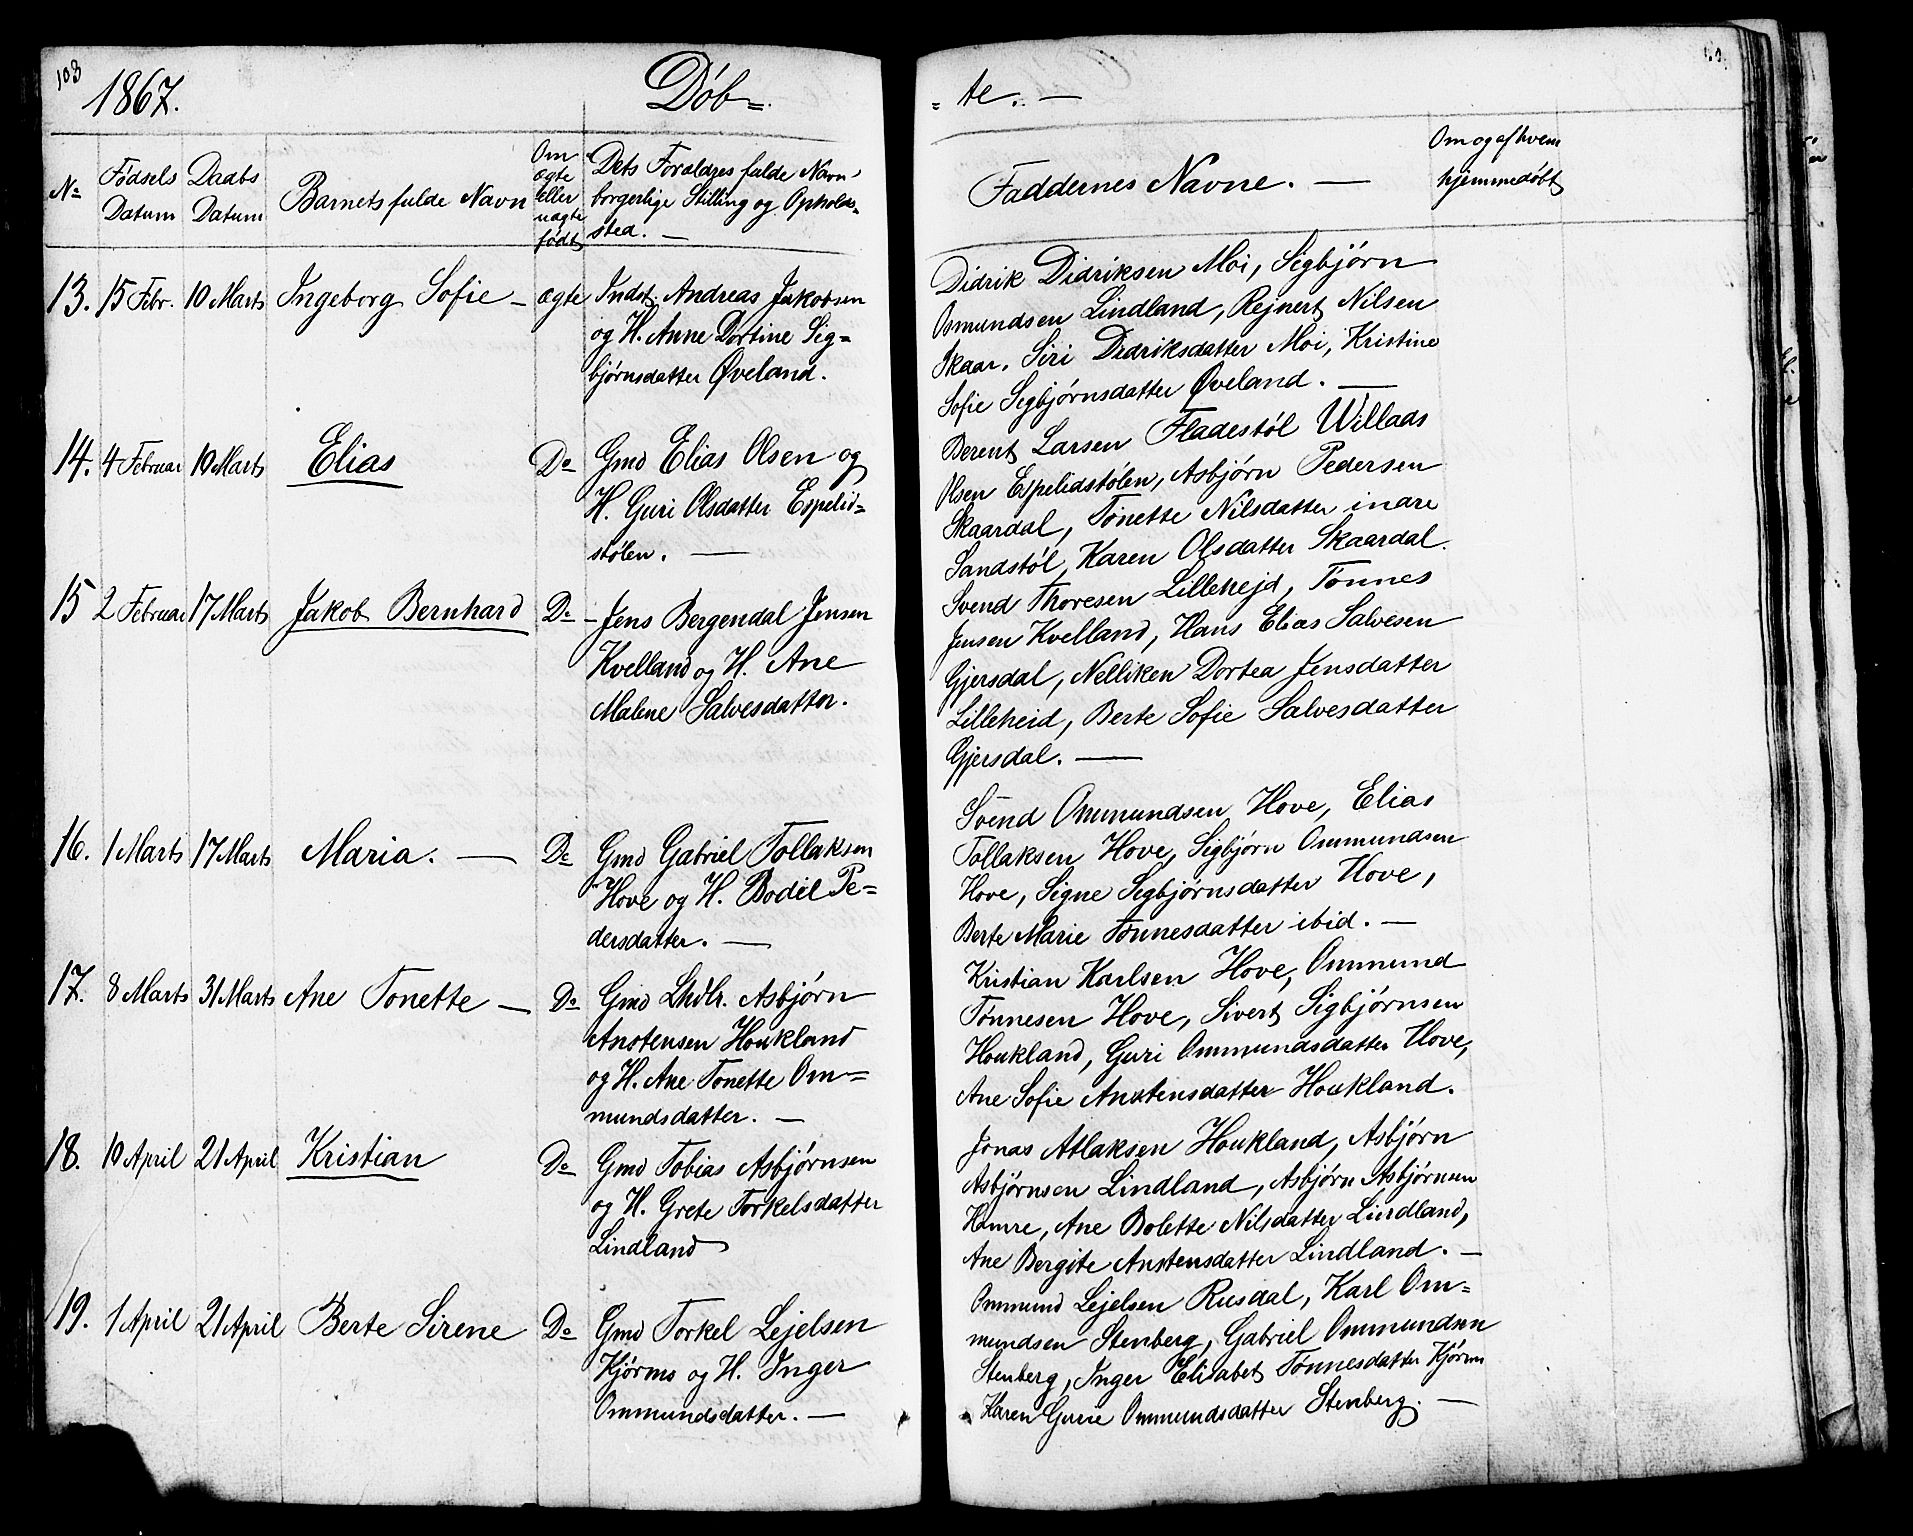 103
1867.
Döb=
= te. —
No
Fødsels Datum
Daabs Datum
Barnets fulde Navn
Om ægte eller uægte født
Dets Forældres fulde Navn,
borgerlige Stilling og Opholds=
sted. —
Faddernes Navne. —
Om og af hvem
hjemmedöbt
13. 15 Febr. 10 Marts Ingeborg Sofie — ægte Indst. Andreas Jakobsen
og H. Anne Dortine Sig=
bjørnsdatter Øveland.
Didrik Didriksen Moi, Sigbjörn
Osmundsen Lindland, Rejnert Nilsen
Skaar. Siri Didriksdatter Moi, Kristine
Sofie Sigbjörnsdatter Øveland. —
14. 4 Februar 10 Marts Elias Do Gmd Elias Olsen og
H. Guri Olsdatter Espelid=
stølen. —
Berent Larsen Fladestöl Willads
Olsen Espelidstölen, Asbjörn Pedersen
Skaardal, Tönette Nilsdatter indre
Sandstöl, Karen Olsdatter Skaardal.
15 2 Februar 17 Marts Jakob Bernhard Do – Jens Bergendal Jensen
Kvelland og H. Ane
Malene Salvesdatter.
Svend Thoresen Lillehejd, Tönnes
Jensen Kvelland, Hans Elias Salvesen
Gjersdal, Nelliken Dortea Jensdatter
Lilleheid, Berte Sofie Salvesdatter
Gjersdal. —
16. 1 Marts 17 Marts Maria. — Do Gmd Gabriel Tollaksen
Hove og H. Bodil Pe=
dersdatter. —
Svend Ommundsen Hove, Elias
Tollaksen Hove, Sigbjörn Ommundsen
Hove, Signe Sigbjörnsdatter Hove,
Berte Marie Tönnesdatter ibid. —
17. 8 Marts 31 Marts Ane Tonette — Do Gmd Lhdlr. Asbjörn
Anstensen Houkland
og H. Ane Tonette Om=
mundsdatter. —
Kristian Karlsen Hove, Ommund
Tönnesen Hove, Sivert Sigbjörnsen
Houkland, Guri Ommundsdatter Hove,
Ane Sofie Anstensdatter Houkland.
18. 10 April 21 April Kristian Do Gmd Tobias Asbjörnsen
og H. Grete Torkelsdatter
Lindland
Jonas Atlaksen Houkland, Asbjörn
Asbjörnsen Lindland, Asbjörn Asbjörnsen
Hamre, Ane Bolette Nilsdatter Lindland,
Ane Bergite Anstensdatter Lindland. —
19. 1 April 21 April Berte Sirene Do Gmd Torkel Lejelsen
Kjörms og H. Inger
Ommundsdatter. —
Ommund Lejelsen Rusdal, Karl Om=
mundsen Stenberg, Gabriel Ommundsen
Stenberg, Inger Elisabet Tönnesdatter Kjörms
Karen Gurie Ommundsdatter Stenberg. —